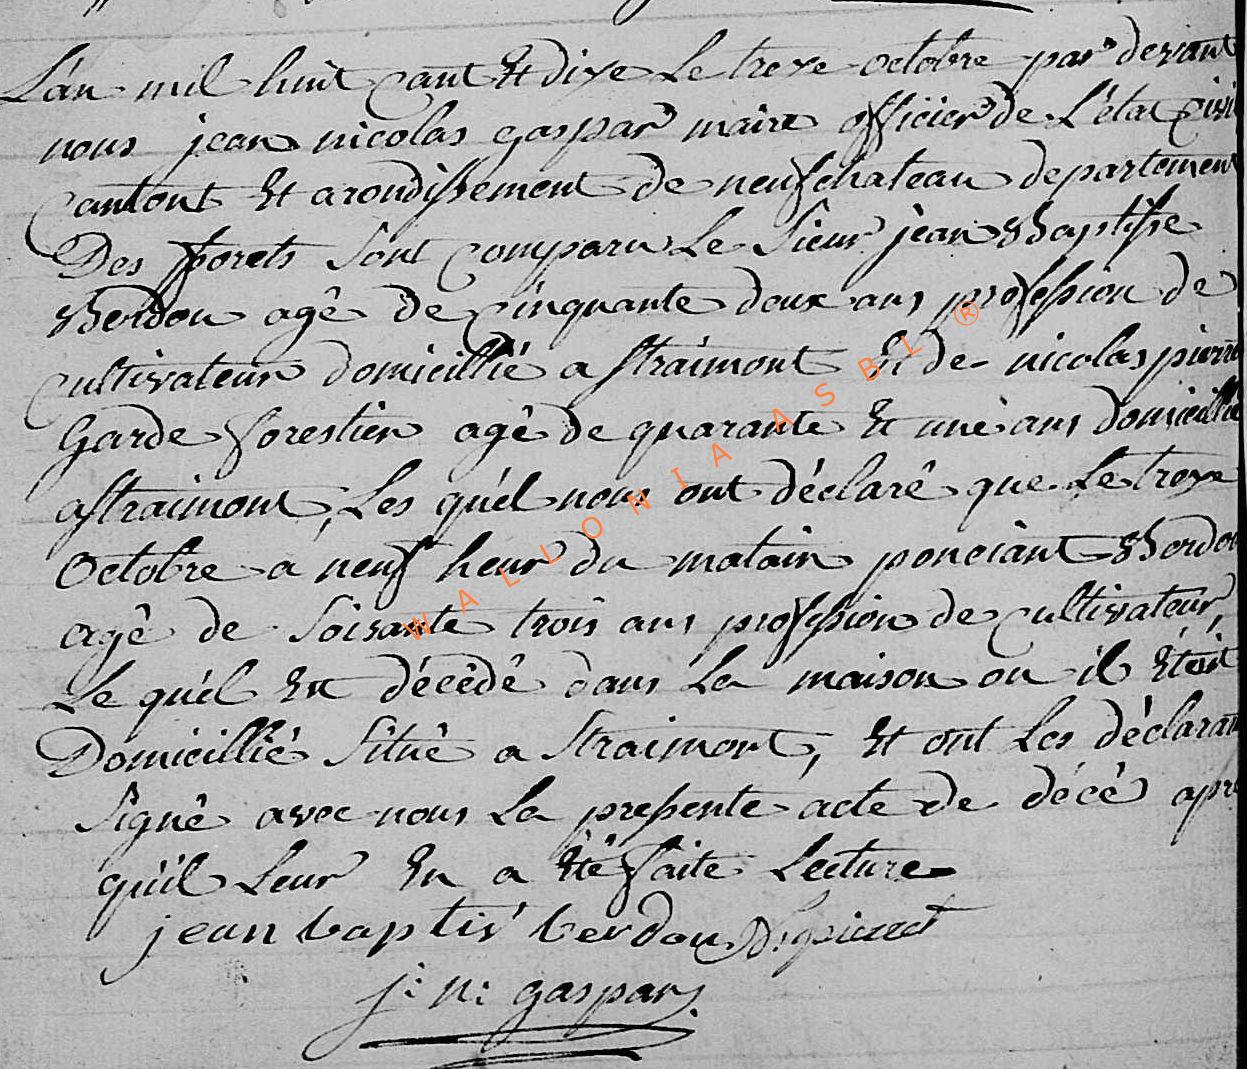 L'an mil huit cant Et dixe Le treze octobre par devant
nous jean nicolas gaspar maire officier de L'état civi
cantont Et arondissement de neufchateau departement
Des forets Sont comparu Le Sieur jean Baptiste
Berdou agé de cinquante deux ans profession de
cultivateur domicillié a Straimont Et de nicolas pierre
Garde forestier agé de quarante Et une ans domicillié
a Straimont, Les quél nous ont déclaré que Le treze
octobre a neuf heur du matain ponciant Berdou
agé de Soixante trois ans profession de cultivateur,
Le quél Est décédé dans La maison ou il Etoit
Domicillié Situé a Straimont, Et ont Les déclarant
Signé avec nous La pressente acte de décé apré
quil Leur En a Eté faite Lecture
jean baptis berdou N pierret
j: n: gaspar
WALLONIA ASBL ®